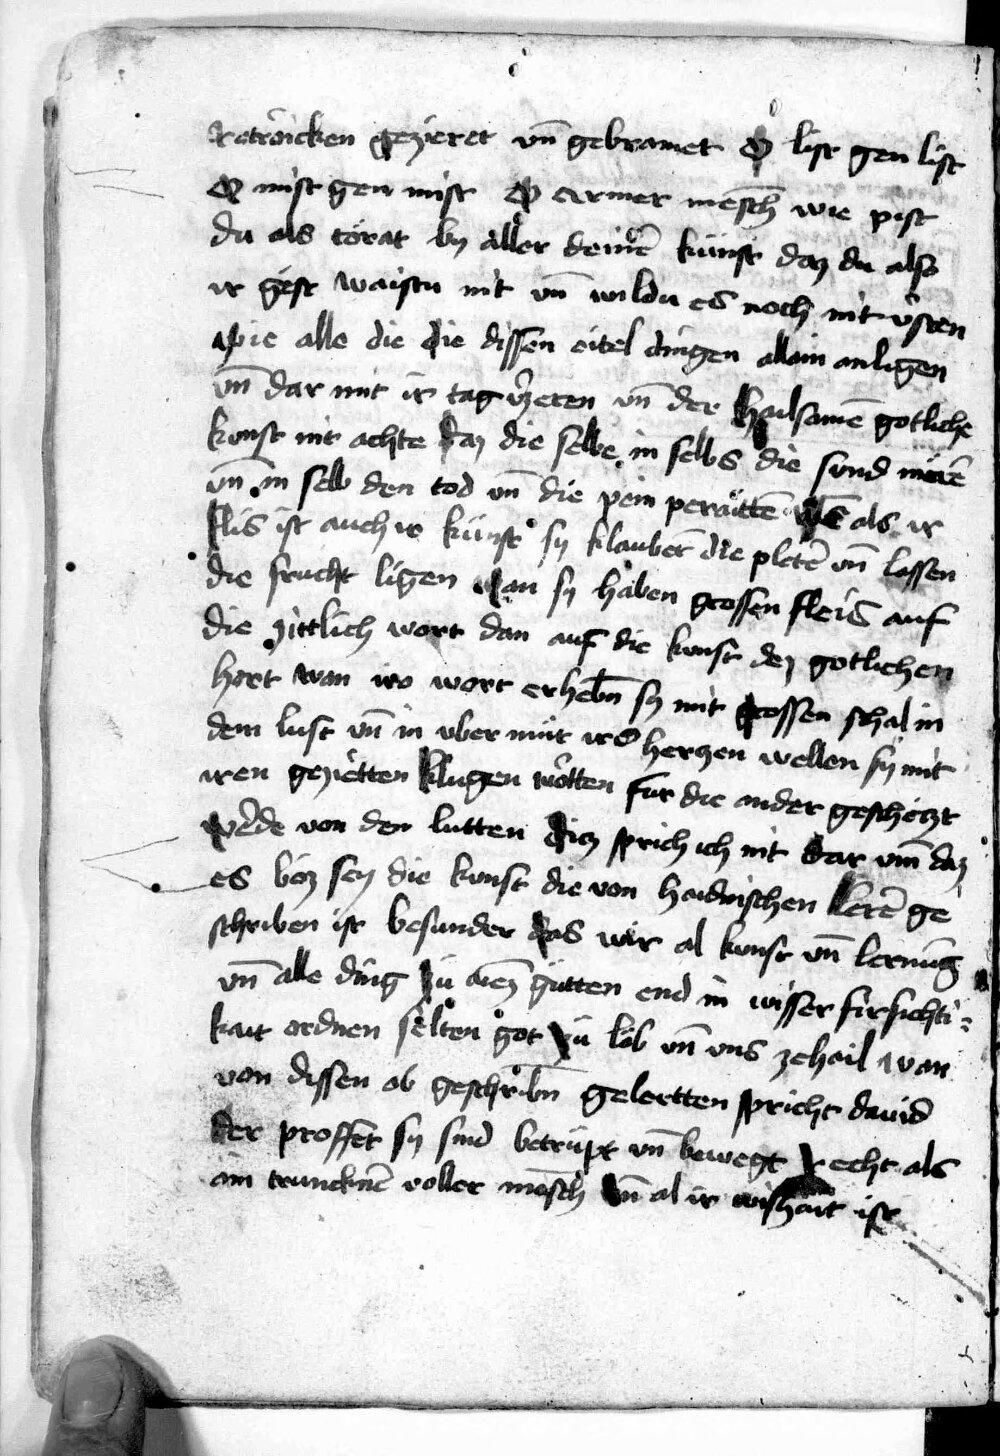 Retröicken gezieret vn̄ gebramet O list gen list
O mist gen mist O armer mensch wie pist
du als törat by aller deinē kunst daz du also
ir gest waistu nit vn̄ wildu es noch nit vˢsten
Wie alle die die dissen eitel dingen allain anligen
vn̄ dar mit ir tag vˢzeren vn̄ der hailsamē gotliche
kunst nit achtē daz die selbe in selbs die sund merē
vn̄ in selb den tod vn̄ die pein peraittē als ir
flis ist auch ir kunst sy klauben die pletē vn̄ lassen
die frucht ligen wan sy haben grossen fleis auf
die zittlich wort dan auf die kunst dez gotlichen
hort wan iro wort erhebn̄ sy mit grossen schal in
dem lust vn̄ in vber mut iro herzen wellen sy mit
iren geziertten klugen wortten fur die ander geschetzt
werde von den lutten diz sprich ich nit dar vm̄ daz
es böz sey die kunst die von haidnischen lerē ge
schriben ist besunder das wir al kunst vn̄ lernūg
vn̄ alle ding zu ainez gutten end in wisser fürsichti=
kait ordnen sölten got zu lob vn̄ vns ze hail wan
von dissen ob geschribn̄ gelertten spricht dauid
der proffet sy sind betrupt vn̄ bewegt recht als
ain trunckner voller mensch vn̄ al ir wishait ist